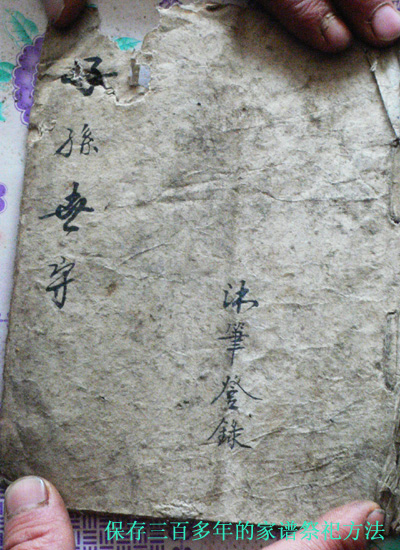 沐筆登錄
孫世守
保存三百多年的家谱祭祀方法